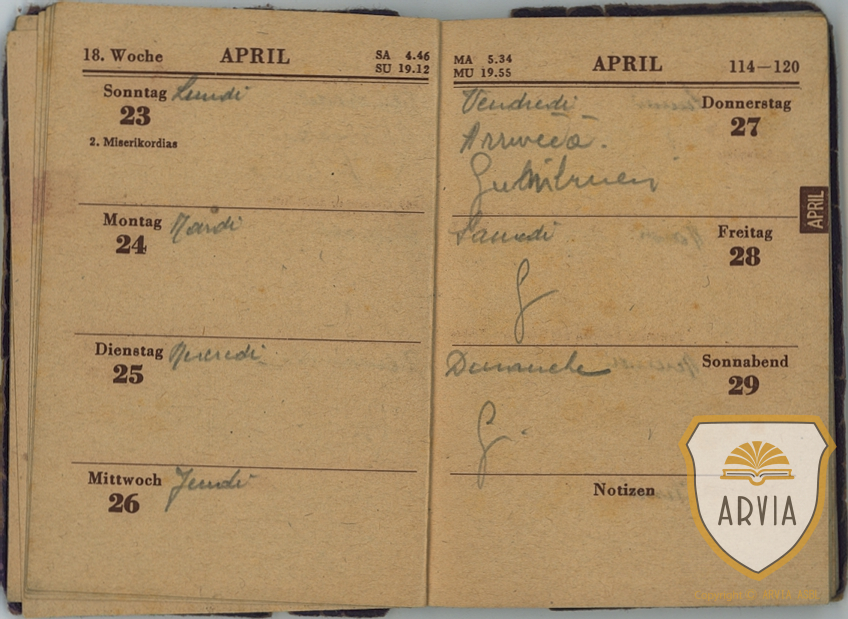 18. Woche APRIL SA 4.46
SU 19.12
Sonntag Lundi
23
2. Miserikordias
Montag Mardi
24
Dienstag Mercredi
25
Mittwoch Jeudi
26
MA 5.34 APRIL 114—120
MU 19.55
Vendredi Donnerstag
27
APRIL
Samedi Freitag
28
G
Dimanche Sonnabend
29
G.
Notizen
ARVIA